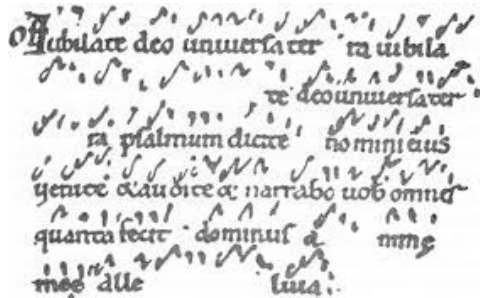 Of Iubilate deo universa ter ra iubila
te deo universa ter
ra psalmum dicite nomini eius
venite & audite & narrabo vob omnes
quanta fecit dominus a nime
mee alle luia